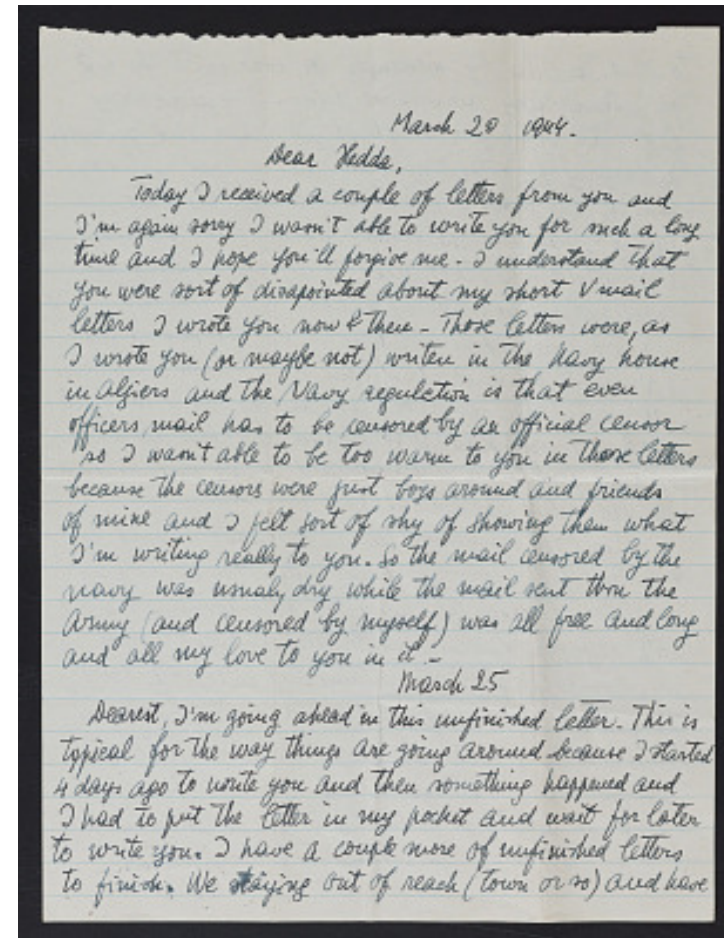 March 20 1944.
Dear Hedda,
Today I received a couple of letters from you and
I'm again sorry I wasn't able to write you for such a long
time and I hope you'll forgive me - I understand that
you were sort of disapointed about my short V mail
letters I wrote you now & then - Those letters were, as
I wrote you (or maybe not) writen in the Navy house
in Algiers and the Navy regulation is that even
officers mail has to be censored by an official censor
so I wasn't able to be too warm to you in those letters
because the censors were just boys around and friends
of mine and I felt sort of shy of showing them what
I'm writing really to you. So the mail censored by the
navy was usualy dry while the mail sent thru the
Army (and censored by myself) was all free and long
and all my love to you in it -
March 25
Dearest, I'm going ahead in this unfinished letter. This is
typical for the way things are going around because I started
4 days ago to write you and then something happened and
I had to put the letter in my pocket and wait for later
to write you. I have a couple more of unfinished letters
to finish. We staying out of reach (town or so) and have